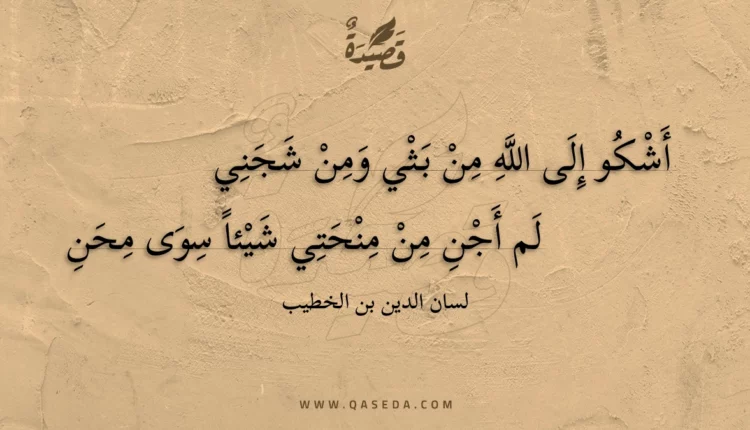 قَصِيدَةٌ
أَشْكُو إِلَى اللَّهِ مِنْ بَثْي وَمِنْ شَجَنِي
لَم أَجْنِ مِنْ مِنْحَتِي شَيْئاً سِوَى مِحَنِ
لسان الدين بن الخطيب
WWW.QASEDA.COM